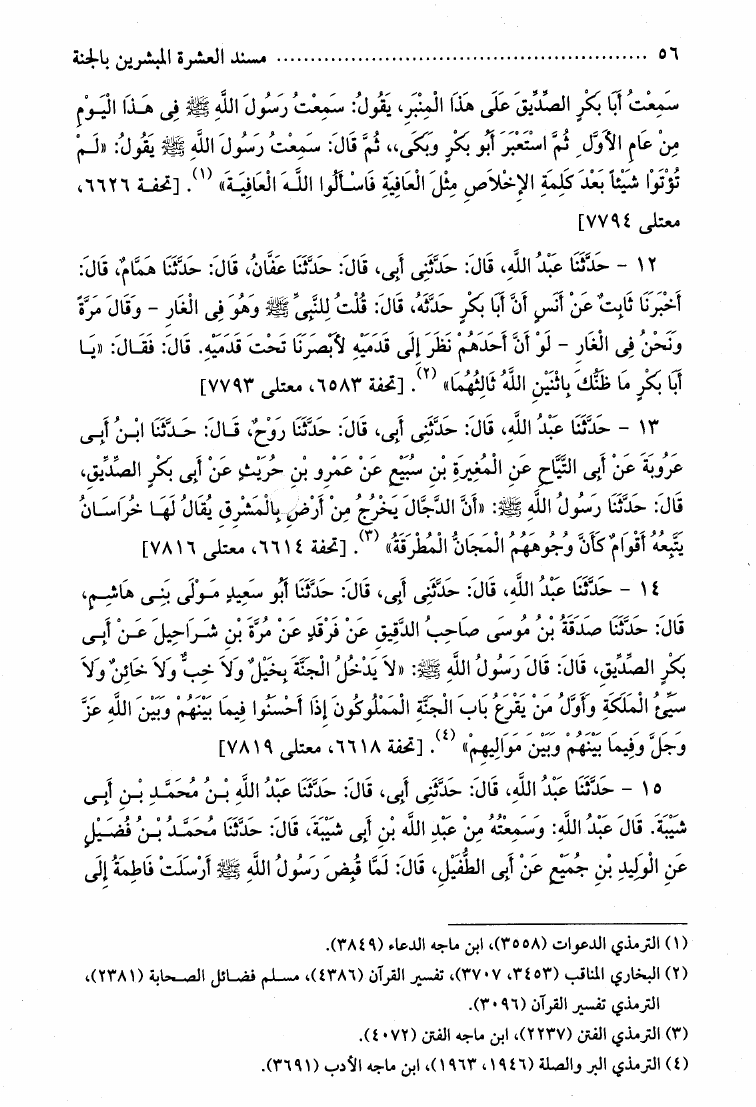 ٥٦ ........................................................ مسند العشرة المبشرين بالجنة
سَمِعْتُ أَبَا بَكْرٍ الصِّدِّيقَ عَلَى هَذَا الْمِنْبَرِ، يَقُولُ: سَمِعْتُ رَسُولَ اللَّهِ ﷺ فِى هَذَا الْيَوْمِ
مِنْ عَامِ الأَوَّلِ ثُمَّ اسْتَعْبَرَ أَبُو بَكْرٍ وَبَكَى،، ثُمَّ قَالَ: سَمِعْتُ رَسُولَ اللَّهِ ﷺ يَقُولُ: «لَمْ
تُؤْتَوْا شَيْئاً بَعْدَ كَلِمَةِ الإِخْلاَصِ مِثْلَ الْعَافِيَةِ فَاسْأَلُوا اللَّهَ الْعَافِيَةَ» (١). [تحفة ٦٦٢٦،
معتلى ٧٧٩٤]
١٢ - حَدَّثَنَا عَبْدُ اللَّهِ، قَالَ: حَدَّثَنِى أَبِى، قَالَ: حَدَّثَنَا عَفَّانُ، قَالَ: حَدَّثَنَا هَمَّامٌ، قَالَ:
أَخْبَرَنَا ثَابِتٌ عَنْ أَنَسٍ أَنَّ أَبَا بَكْرٍ حَدَّثَهُ، قَالَ: قُلْتُ لِلنَّبِىِّ ﷺ وَهُوَ فِى الْغَارِ - وَقَالَ مَرَّةً
وَنَحْنُ فِى الْغَارِ - لَوْ أَنَّ أَحَدَهُمْ نَظَرَ إِلَى قَدَمَيْهِ لأَبْصَرَنَا تَحْتَ قَدَمَيْهِ. قَالَ: فَقَالَ: «يَا
أَبَا بَكْرٍ مَا ظَنُّكَ بِاثْنَيْنِ اللَّهُ ثَالِثُهُمَا» (٢). [تحفة ٦٥٨٣، معتلى ٧٧٩٣]
١٣ - حَدَّثَنَا عَبْدُ اللَّهِ، قَالَ: حَدَّثَنِى أَبِى، قَالَ: حَدَّثَنَا رَوْحٌ، قَالَ: حَدَّثَنَا ابْنُ أَبِى
عَرُوبَةَ عَنْ أَبِى التَّيَّاحِ عَنِ الْمُغِيرَةِ بْنِ سُبَيْعٍ عَنْ عَمْرِو بْنِ حُرَيْثٍ عَنْ أَبِى بَكْرٍ الصِّدِّيقِ،
قَالَ: حَدَّثَنَا رَسُولُ اللَّهِ ﷺ: «أَنَّ الدَّجَّالَ يَخْرُجُ مِنْ أَرْضٍ بِالْمَشْرِقِ يُقَالُ لَهَا خُرَاسَانُ
يَتَّبِعُهُ أَقْوَامٌ كَأَنَّ وُجُوهَهُمُ الْمَجَانُّ الْمُطْرَقَةُ» (٣). [تحفة ٦٦١٤، معتلى ٧٨١٦]
١٤ - حَدَّثَنَا عَبْدُ اللَّهِ، قَالَ: حَدَّثَنِى أَبِى، قَالَ: حَدَّثَنَا أَبُو سَعِيدٍ مَوْلَى بَنِى هَاشِمٍ،
قَالَ: حَدَّثَنَا صَدَقَةُ بْنُ مُوسَى صَاحِبُ الدَّقِيقِ عَنْ فَرْقَدٍ عَنْ مُرَّةَ بْنِ شَرَاحِيلَ عَنْ أَبِى
بَكْرٍ الصِّدِّيقِ، قَالَ: قَالَ رَسُولُ اللَّهِ ﷺ: «لاَ يَدْخُلُ الْجَنَّةَ بَخِيلٌ وَلاَ خِبٌّ وَلاَ خَائِنٌ وَلاَ
سَيِّئُ الْمَلَكَةِ وَأَوَّلُ مَنْ يَقْرَعُ بَابَ الْجَنَّةِ الْمَمْلُوكُونَ إِذَا أَحْسَنُوا فِيمَا بَيْنَهُمْ وَبَيْنَ اللَّهِ عَزَّ
وَجَلَّ وَفِيمَا بَيْنَهُمْ وَبَيْنَ مَوَالِيهِمْ» (٤). [تحفة ٦٦١٨، معتلى ٧٨١٩]
١٥ - حَدَّثَنَا عَبْدُ اللَّهِ، قَالَ: حَدَّثَنِى أَبِى، قَالَ: حَدَّثَنَا عَبْدُ اللَّهِ بْنُ مُحَمَّدِ بْنِ أَبِى
شَيْبَةَ. قَالَ عَبْدُ اللَّهِ: وَسَمِعْتُهُ مِنْ عَبْدِ اللَّهِ بْنِ أَبِى شَيْبَةَ، قَالَ: حَدَّثَنَا مُحَمَّدُ بْنُ فُضَيْلٍ
عَنِ الْوَلِيدِ بْنِ جُمَيْعٍ عَنْ أَبِى الطُّفَيْلِ، قَالَ: لَمَّا قُبِضَ رَسُولُ اللَّهِ ﷺ أَرْسَلَتْ فَاطِمَةُ إِلَى
(١) الترمذي الدعوات (٣٥٥٨)، ابن ماجه الدعاء (٣٨٤٩).
(٢) البخاري المناقب (٣٤٥٣، ٣٧٠٧)، تفسير القرآن (٤٣٨٦)، مسلم فضائل الصحابة (٢٣٨١)،
الترمذي تفسير القرآن (٣٠٩٦).
(٣) الترمذي الفتن (٢٢٣٧)، ابن ماجه الفتن (٤٠٧٢).
(٤) الترمذي البر والصلة (١٩٤٦، ١٩٦٣)، ابن ماجه الأدب (٣٦٩١).